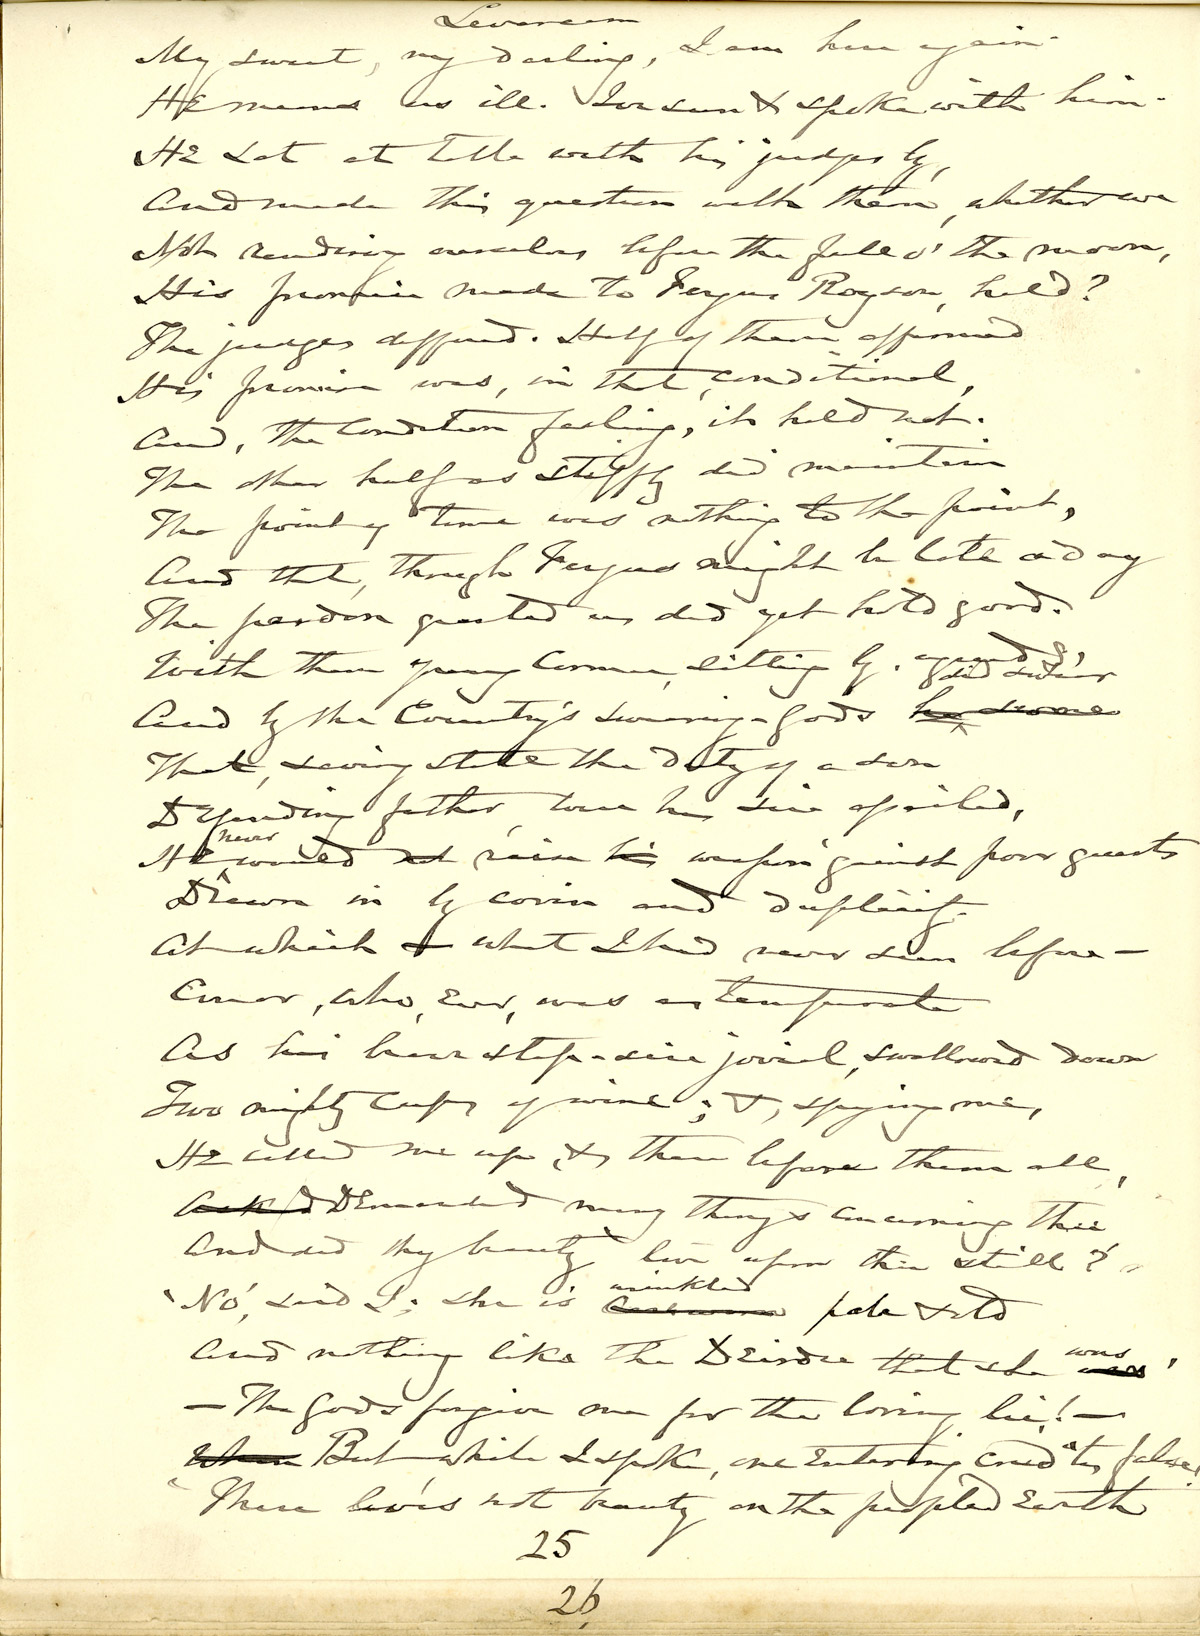 Levarcam
My sweet, my darling, I am here again.
He means us ill. I've seen & spoke with him.
He sat at table with his judges by,
And made this question with them, whether we
Not rendering ourselves before the full o' the moon,
His promise made to Fergus Royson, held?
The judges differed. Half of them affirmed
His promise was, in that, conditional,
And, the condition failing, it held not.
The other half as stiffly did maintain
The point of time was nothing to the point,
And that, though Fergus might be late a day
The pardon granted us did yet hold good.
With them young Cormac, sitting by, agreed,
did swear
And by the Country's swearing-gods he swore
That, saving still the duty of a son
Defending father, were his sire assailed,
never
He would not raise his weapon 'gainst poor guests
Drawn in by covin and duplicity.
At which – what I had never seen before –
Conor, who, ever, was as temperate
As his brave step-sire jovial, swallowed down
Two mighty cups of wine; &, spying me,
He called me up &, there before them all,
Ask'd Demanded many things concerning thee
And did thy beauty live upon thee still?
'No', said I; she is pale & old
wrinkled
And nothing like the Deirdre that she was
was'
– The Gods forgive me for the loving lie! –
When But while I spoke, one entering cried "'tis false!
"There lives not beauty on the peopled Earth
25
26